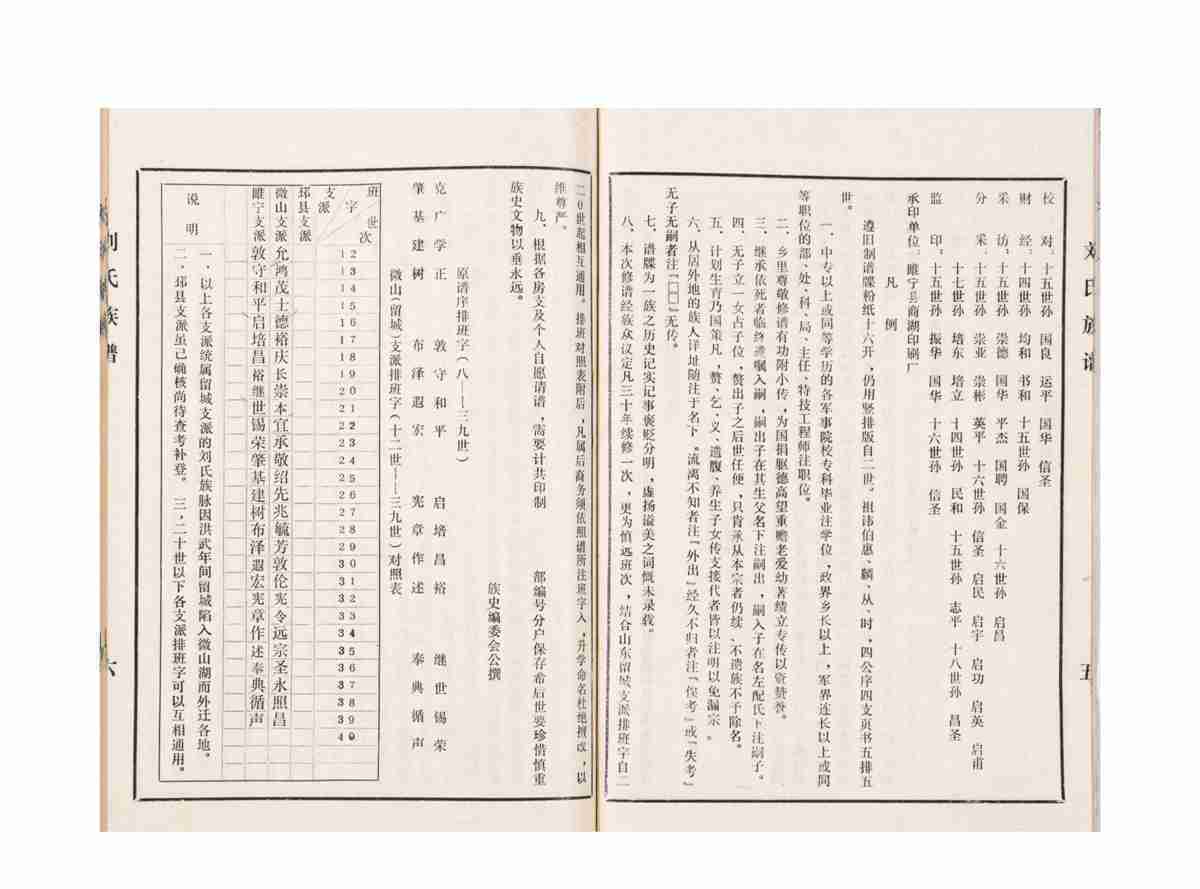 刘氏族谱
五
校　对：十五世孙　国良　运平　国华　信圣
财　经：十四世孙　均和　书和　十五世孙　国保
采　访：十五世孙　崇德　国华　平杰　国聘　国金　十六世孙　启昌
分　采：十五世孙　崇业　崇彬　英平　十六世孙　信圣　启民　启宇　启功　启英　启甫
十七世孙　培东　培立　十四世孙　民和　十五世孙　志平　十八世孙　昌圣
监　印：十五世孙　振华　国华　十六世孙　信圣
承印单位：睢宁县商湖印刷厂
凡　例
遵旧制谱牒粉纸十六开，仍用竖排版自二世。祖讳伯惠、麟、从。时，四公序四支页书五排五
世。
一、中专以上或同等学历的各军事院校专科毕业注学位，政界乡长以上，军界连长以上或同
等职位的部、处、科、局、主任、特技工程师注职位。
二、乡里尊敬修谱有功附小传，为国捐躯德高望重赡老爱幼著绩立专传以资赞誉。
三、继承依死者临终遗嘱入嗣，嗣出子在其生父名下注嗣出，嗣入子在名左配氏下注嗣子。
四、无子立一女占子位，赘出子之后世任便，只肯承从本宗者仍续、不遗族不予除名。
五、计划生育乃国策凡，赘、乞、义、遗腹、养生子女传支接代者皆以注明以免漏宗。
六、从居外地的族人详址随注于名下。流离不知者注「外出」经久不归者注「俟考」或「失考」
无子无嗣者注「□□」无传。
七、谱牒为一族之历史记实记事褒贬分明，虚扬溢美之词慨未录载。
八、本次修谱经族众议定凡三十年续修一次，更为慎远班次，结合山东留城支派排班字自二
二0世起相互通用。排班对照表附后，凡属后裔务须依照谱所注班字入，升学命名杜绝擅改，以
维尊严。
九、根据各房支及个人自愿请谱，需要计共印制　　　部编号分户保存希后世要珍惜慎重
族史文物以垂永远。
族史编委会公撰
原谱序排班字(八——三九世)
克广学正　敦守和平　启培昌裕　继世锡荣
肇基建树　布泽遐宏　宪章作述　奉典循声
微山(留城)支派排班字(十二世——三九世)对照表
班　世次
字
支派
12 13 14 15 16 17 18 19 20 21 22 23 24 25 26 27 28 29 30 31 32 33 34 35 36 37 38 39 40
邳县支派
微山支派　允鸿茂士德裕庆长崇本宜承敬绍先兆毓芳敦伦宪令远宗圣永照昌
睢宁支派　敦守和平启培昌裕继世锡荣肇基建树布泽遐宏宪章作述奉典循声
说明
一、以上各支派统属留城支派的刘氏族脉因洪武年间留城陷入微山湖而外迁各地。
二、邳县支派虽已确核尚待查考补登。三，二十世以下各支派排班字可以互相通用。
刘氏族谱
六